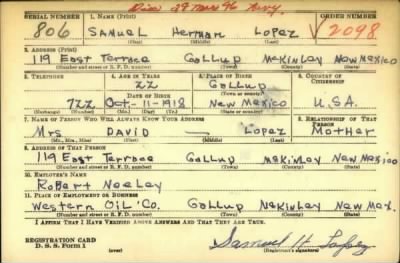 Disc 29 Nov 46 Navy
SERIAL NUMBER 1. NAME (Print) ORDER NUMBER
806 Samuel Herman Lopez V2098
(First) (Middle) (Last)
2. ADDRESS (Print)
119 East Terrace Gallup McKinley New Mexico
(Number and street or R. F. D. number) (Town) (County) (State)
3. TELEPHONE 4. AGE IN YEARS 5. PLACE OF BIRTH 6. COUNTRY OF CITIZENSHIP
22 Gallup
DATE OF BIRTH (Town or county)
722 Oct-11-1918 New Mexico U.S.A.
(Mo.) (Day) (Yr.) (State or country)
7. NAME OF PERSON WHO WILL ALWAYS KNOW YOUR ADDRESS 8. RELATIONSHIP OF THAT PERSON
Mrs David — Lopez Mother
(Mr., Mrs., Miss) (First) (Middle) (Last)
9. ADDRESS OF THAT PERSON
119 East Terrace Gallup McKinley New Mexico
(Number and street or R. F. D. number) (Town) (County) (State)
10. EMPLOYER'S NAME
Robert Neeley
11. PLACE OF EMPLOYMENT OR BUSINESS
Western Oil Co. Gallup McKinley New Mex.
(Number and street or R. F. D. number) (Town) (County) (State)
I AFFIRM THAT I HAVE VERIFIED ABOVE ANSWERS AND THAT THEY ARE TRUE.
REGISTRATION CARD
D. S. S. Form 1 (over) Samuel H Lopez
(Registrant's signature)